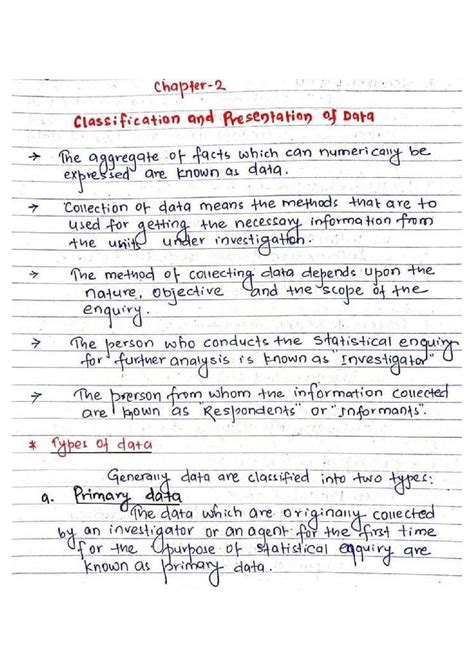 Chapter-2
Classification and Presentation of Data
→ The aggregate of facts which can numerically be
expressed are known as data.
→ Collection of data means the methods that are to
used for getting the necessary information from
the units under investigation.
→ The method of collecting data depends upon the
nature, objective and the scope of the
enquiry.
→ The person who conducts the statistical enquiry
for further analysis is known as "Investigator"
→ The prerson from whom the information collected
are known as "Respondents" or "Informants".
* Types of data
Generally data are classified into two types:
a. Primary data
The data which are originally collected
by an investigator or an agent for the first time
for the purpose of statistical enquiry are
known as primary data.